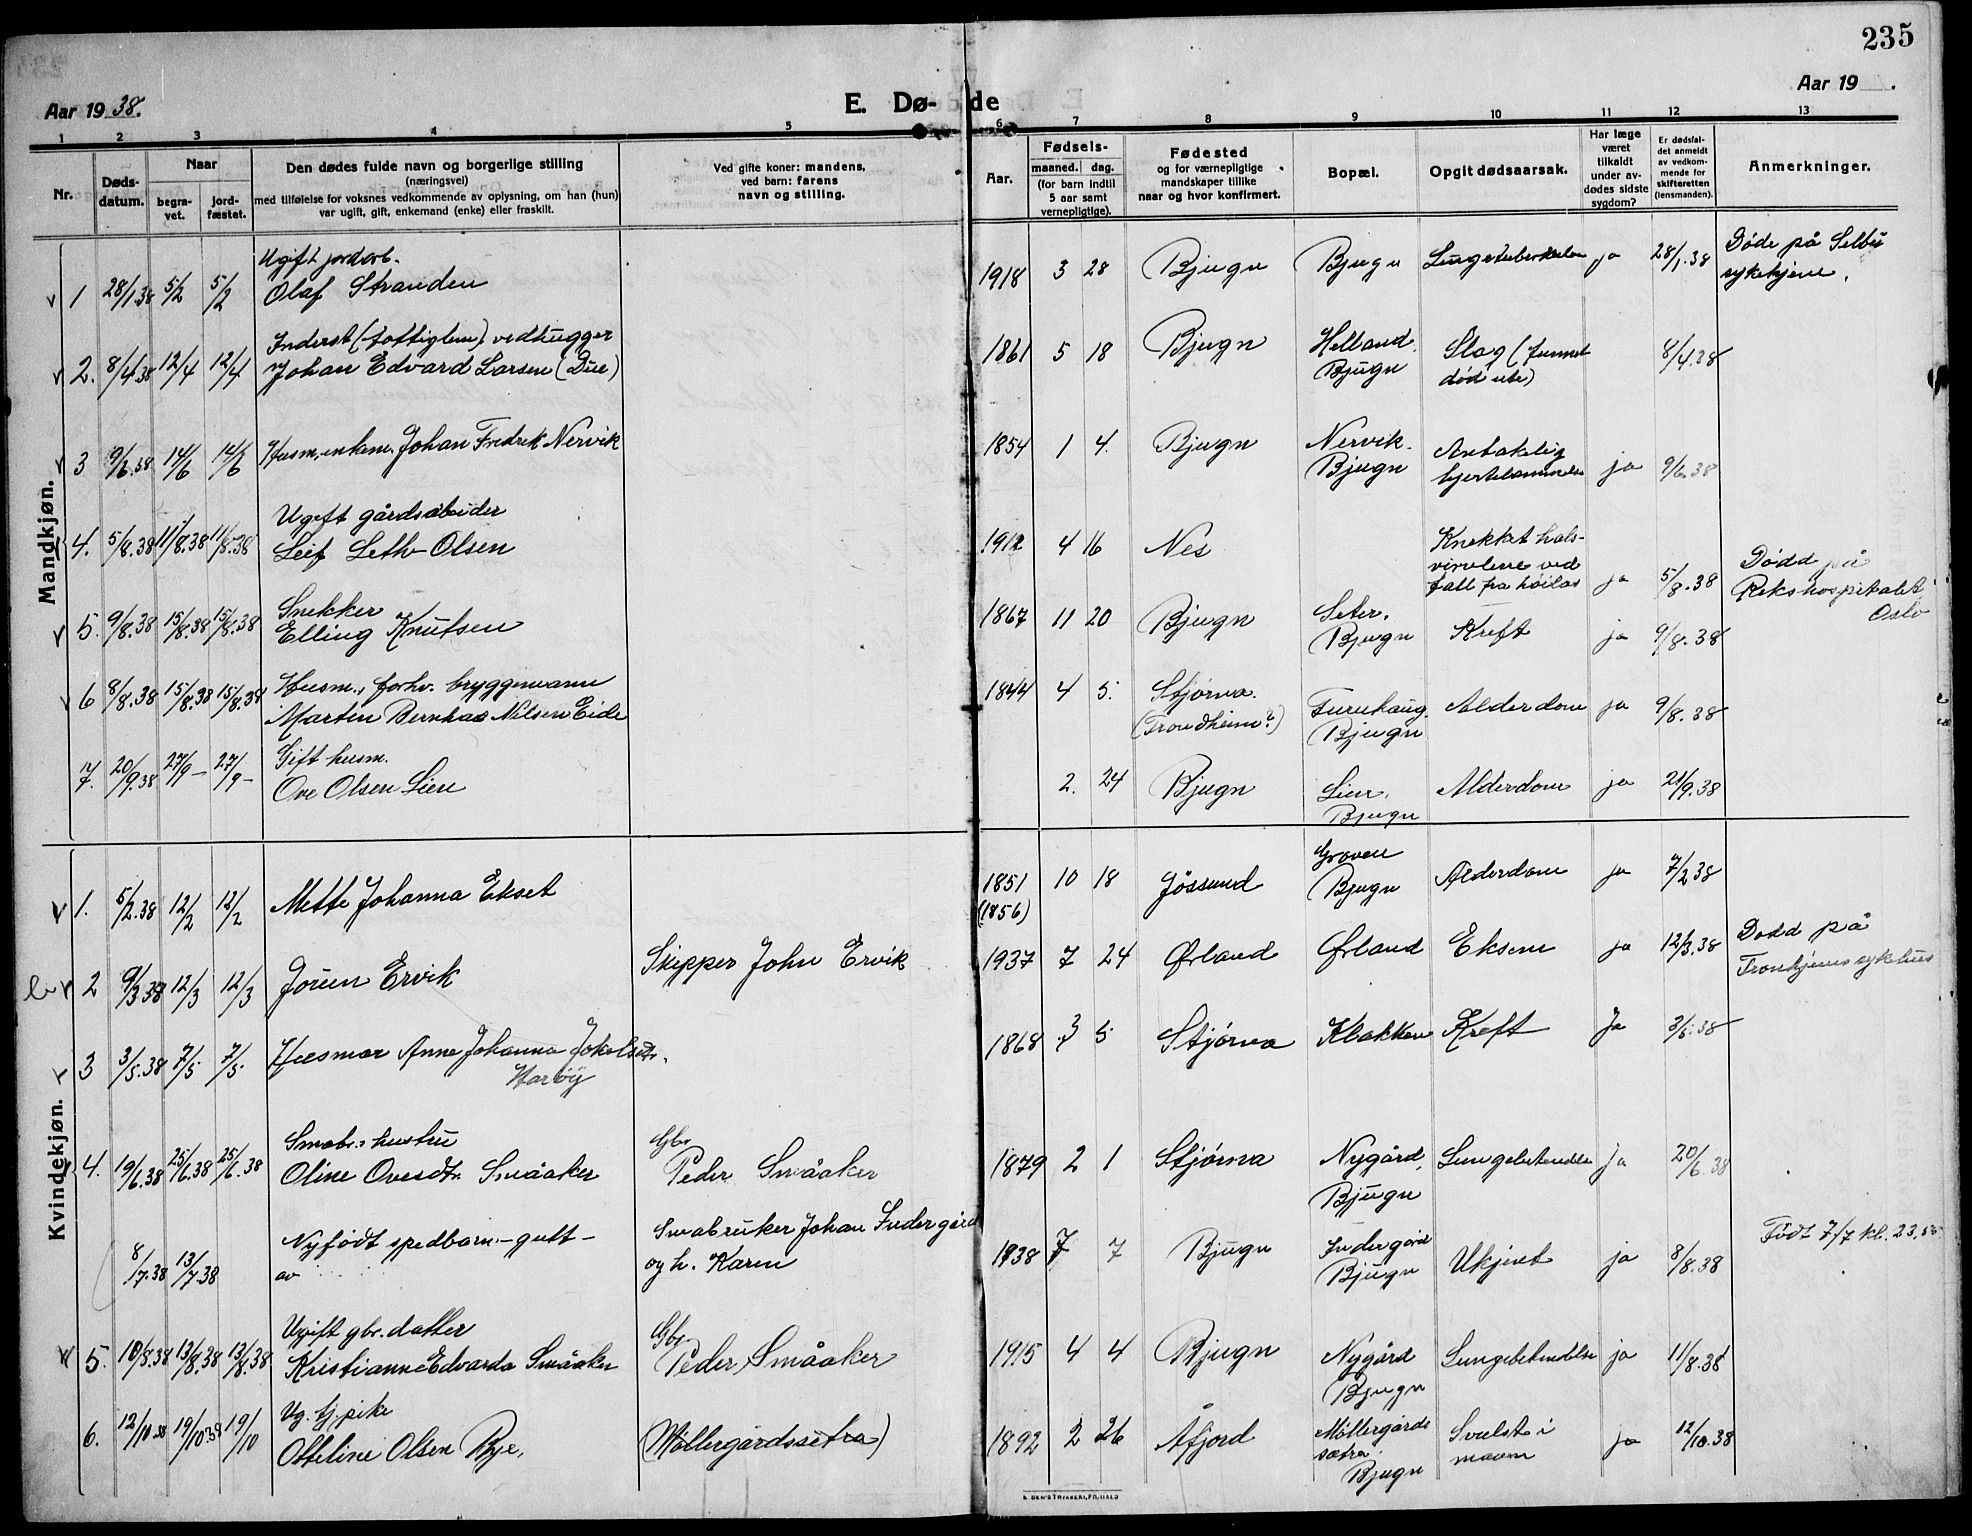 235
Aar 1938.
E. Dø- de
Aar 19 .
1 2 3 4 5 6 7 8 9 10 11 12 13
Nr.
Døds-
datum.
Naar
begra-
vet.
jord-
fæstet.
Den dødes fulde navn og borgerlige stilling
(næringsvei)
med tilføielse for voksnes vedkommende av oplysning, om han (hun)
var ugift, gift, enkemand (enke) eller fraskilt.
Ved gifte koner: mandens,
ved barn: farens
navn og stilling.
Aar.
Fødsels-
maaned. dag.
(for barn indtil
5 aar samt
vernepligtige).
Fødested
og for værnepligtige
mandskaper tillike
naar og hvor konfirmert.
Bopæl.
Opgit dødsaarsak.
Har læge
været
tilkaldt
under av-
dødes sidste
sygdom?
Er dødsfal-
det anmeldt
av vedkom-
mende for
skifteretten
(lensmanden).
Anmerkninger.
Mandkjøn.
Ugift jordarb.
1 28/1.38 5/2 5/2 Olaf Stranden 1918 3 28 Bjugn Bjugn Lungetuberkulose ja 28/1.38 Døde på Selbu
sykehjem.
Inderst (fattiglem) vedhugger
2. 8/4.38 12/4 12/4 Johan Edvard Larsen (Due) 1861 5 18 Bjugn Helland Slag (funnet 8/4.38
Bjugn død ute)
3 9/6.38 14/6 14/6 Husm, enkem. Johan Fredrik Nervik 1854 1 4. Bjugn Nervik. Antakelig
Bjugn hjertelammelse ja 9/6.38
Ugift gårdsarbeider
4. 5/8.38 11/8.38 11/8.38 Leif Leth- Olsen 1912 4 16 Nes Knekket hals-
virvlene ved
fall fra høilas ja 5/8.38 Dødd på
Rikshospitalet
Oslo
Snekker
5. 9/8.38 15/8.38 15/8.38 Elling Knutsen 1867 11 20 Bjugn Seter.
Bjugn Kreft ja 9/8.38
Husm., forhv. bryggemann
6 8/8.38 15/8.38 15/8.38 Martin Bernhar Nilsen Eide 1844 4 5. Stjørna.
(Trondheim?) Furuhaug
Bjugn Alderdom ja 9/8.38
Gift husm.
7. 20/9.38 27/9 - 27/9 - Ove Olsen Lien 2. 24 Bjugn Lien,
Bjugn Alderdom ja 21/9.38
Kvindekjøn.
1. 5/2.38 12/2 12/2 Mette Johanna Ekset 1851
(1856) 10 18 Jøssund Groven
Bjugn Alderdom ja 7/2.38
2 9/3.38 12/3 12/3 Jorun Ervik Skipper John Ervik 1937 7 24 Ørland Ørland Eksem ja 12/3.38 Dødd på
Tronhjems sykehus
3 3/5.38 7/5 7/5 Husmor Anna Johanna Jakobsdtr.
Harøy 1868 3 5 Stjørna Klakken Kreft Ja
Smabr.s hustru
4. 19/6.38 25/6.38 25/6.38 Oline Ovesdtr. Småaker Gbr
Peder Småaker 1879 2 1 Stjørna Nygård,
Bjugn Lungebetendelse ja 20/6.38
8/7.38 13/7.38 Nyfødt spedbarn - gutt -
av Smabruker Johan Indergård
og h. Karen 1938 7 7 Bjugn Indergård
Bjugn Ukjent ja 8/8.38 Født 7/7 kl. 23,55
Ugift gbr. datter
5. 10/8.38 13/8.38 13/8.38 Kristianne Edvarda Småaker Gbr
Peder Småaker 1915 4 4 Bjugn Nygård
Bjugn Lungebetendelse ja 11/8.38
Ug. tj. pike
6. 12/10.38 19/10.38 19/10 Otteline Olsen Rye, (Møllergårdssetra) 1892 2 26 Åfjord Møllergårds
sætra
Bjugn Svulst i
maven ja 12/10.38